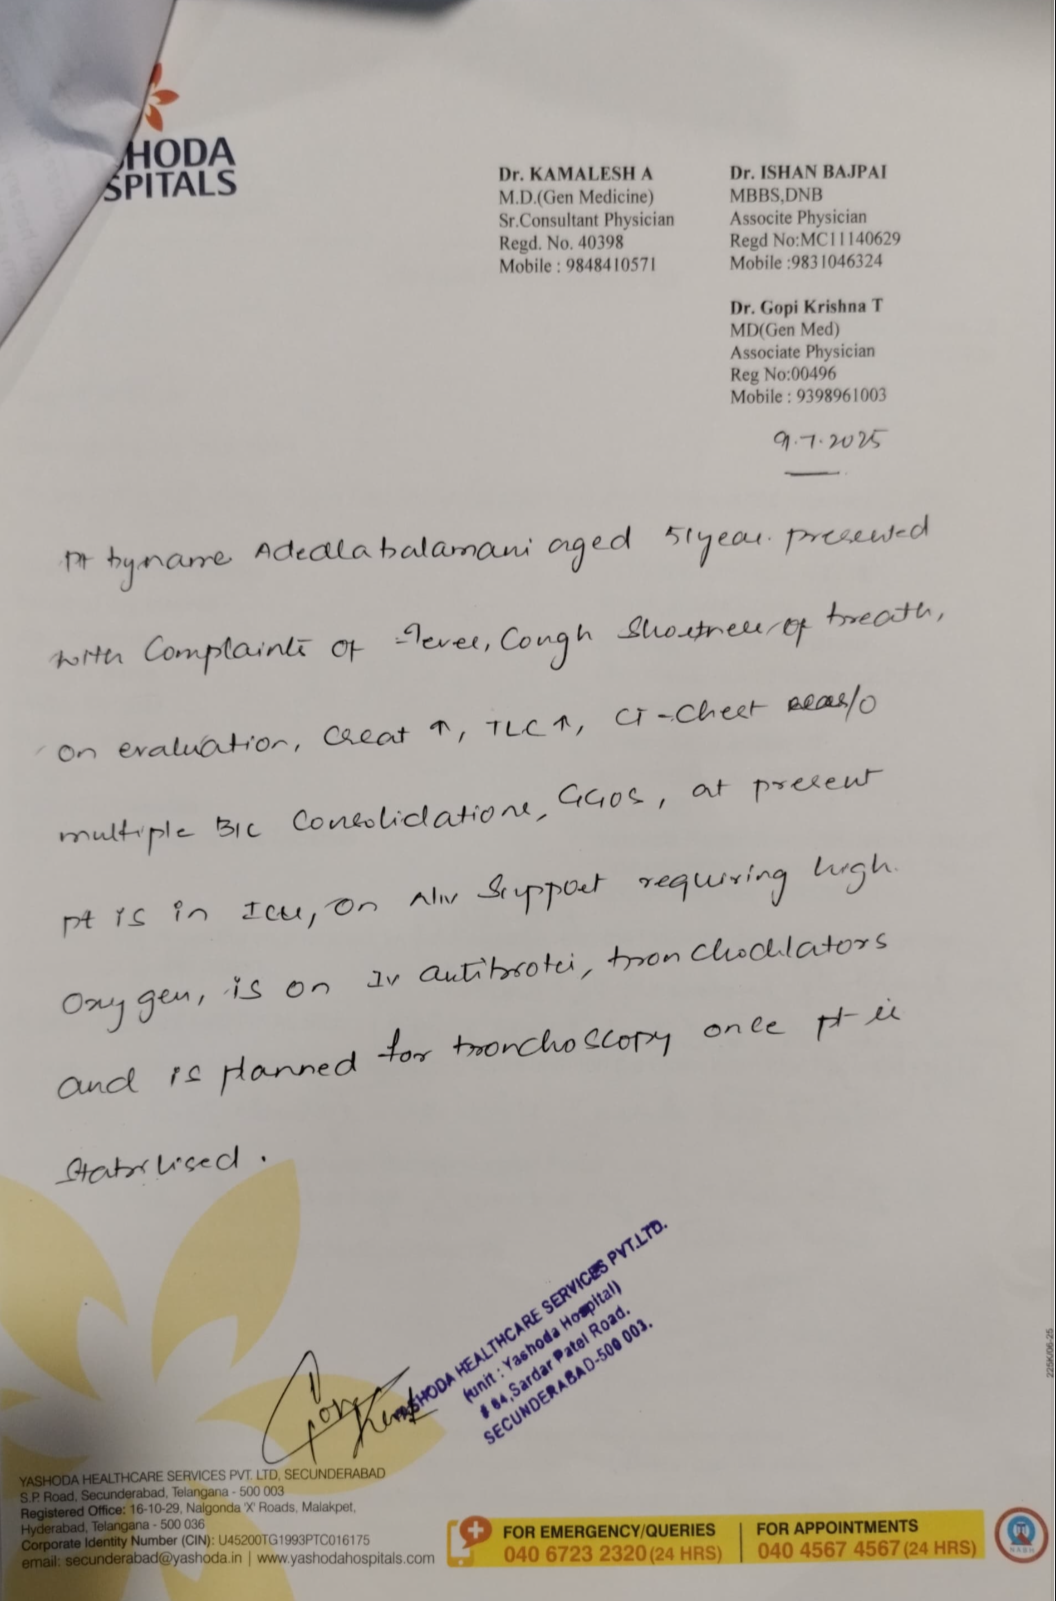 HODA
SPITALS
Dr. KAMALESH A
M.D.(Gen Medicine)
Sr.Consultant Physician
Regd. No. 40398
Mobile : 9848410571
Dr. ISHAN BAJPAI
MBBS,DNB
Associte Physician
Regd No:MC11140629
Mobile :9831046324
Dr. Gopi Krishna T
MD(Gen Med)
Associate Physician
Reg No:00496
Mobile : 9398961003
9.7.2025
Pt by name Adedla balamani aged 51 year. presented
with Complaints of Fever, Cough Shortness of breath,
on evaluation, Creat ↑, TLC ↑, CT-Chest s/o
multiple B/L Consolidations, GGOS, at present
pt is in ICU, on NIV Support requiring high
Oxygen, is on IV antibiotic, bronchodilators
and is planned for bronchoscopy once pt is
Stabilised.
YASHODA HEALTHCARE SERVICES PVT.LTD.
(unit : Yashoda Hospital)
# 64, Sardar Patel Road,
SECUNDERABAD-500 003.
YASHODA HEALTHCARE SERVICES PVT. LTD, SECUNDERABAD
S.P. Road, Secunderabad, Telangana - 500 003
Registered Office: 16-10-29, Nalgonda 'X' Roads, Malakpet,
Hyderabad, Telangana - 500 036
Corporate Identity Number (CIN): U45200TG1993PTC016175
email: secunderabad@yashoda.in | www.yashodahospitals.com
FOR EMERGENCY/QUERIES
040 6723 2320 (24 HRS)
FOR APPOINTMENTS
040 4567 4567 (24 HRS)
NABH